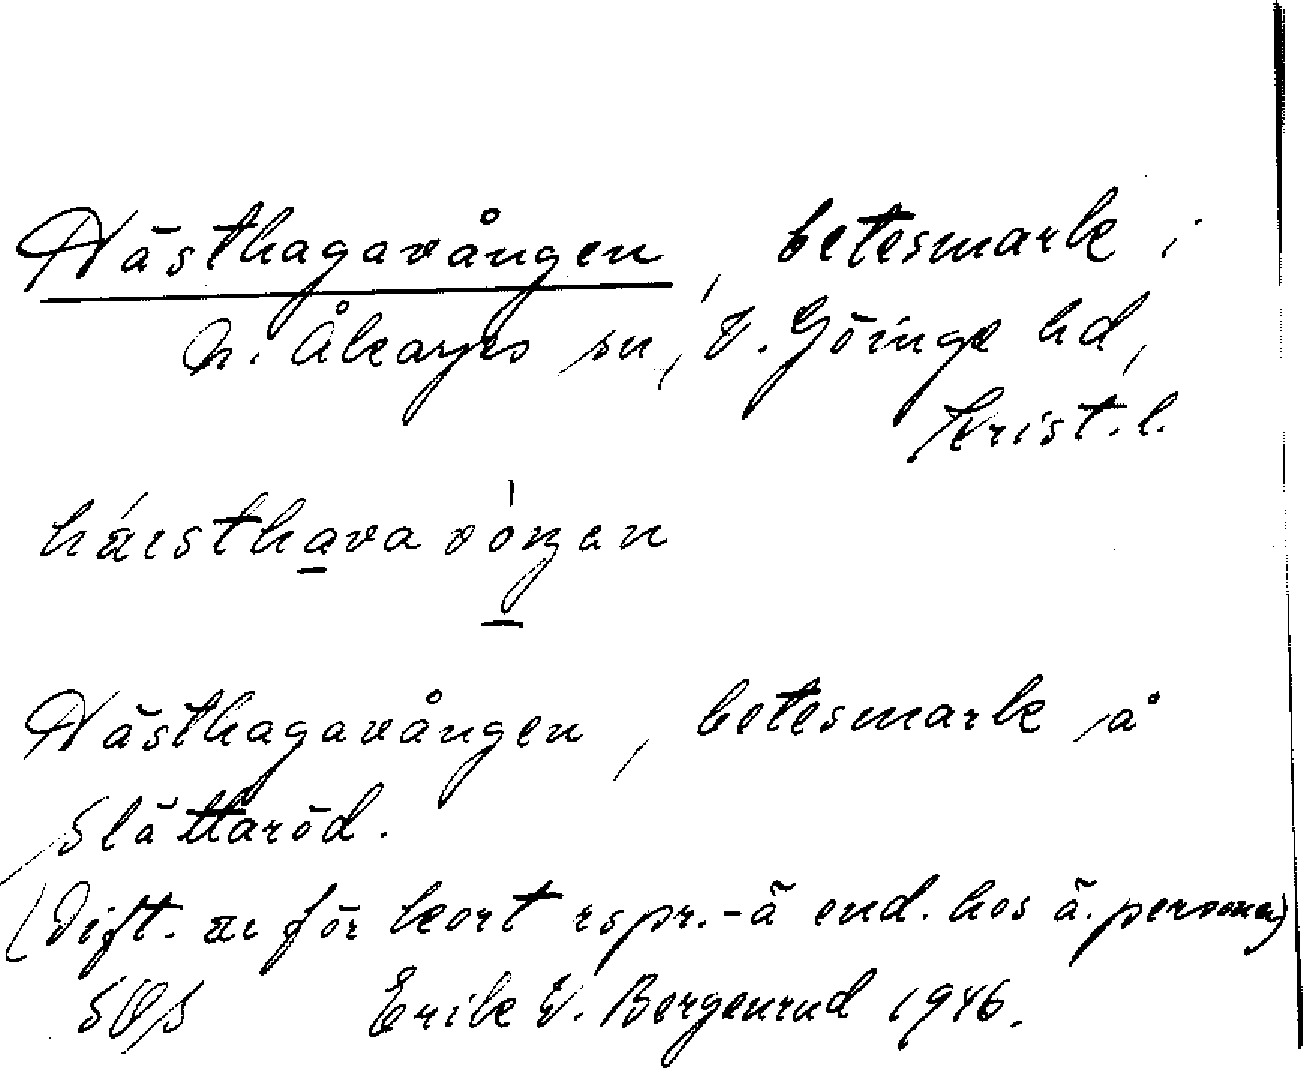 Hästhagavången, betesmark i
N. Åkarps sn, V. Göinge hd,
Krist. l.
Hästhagavången, betesmark å
Slättaröd.
(Dift. æi för kort rspr.-ä end. hos ä. personer)
Erik V. Bergenrud 1946.